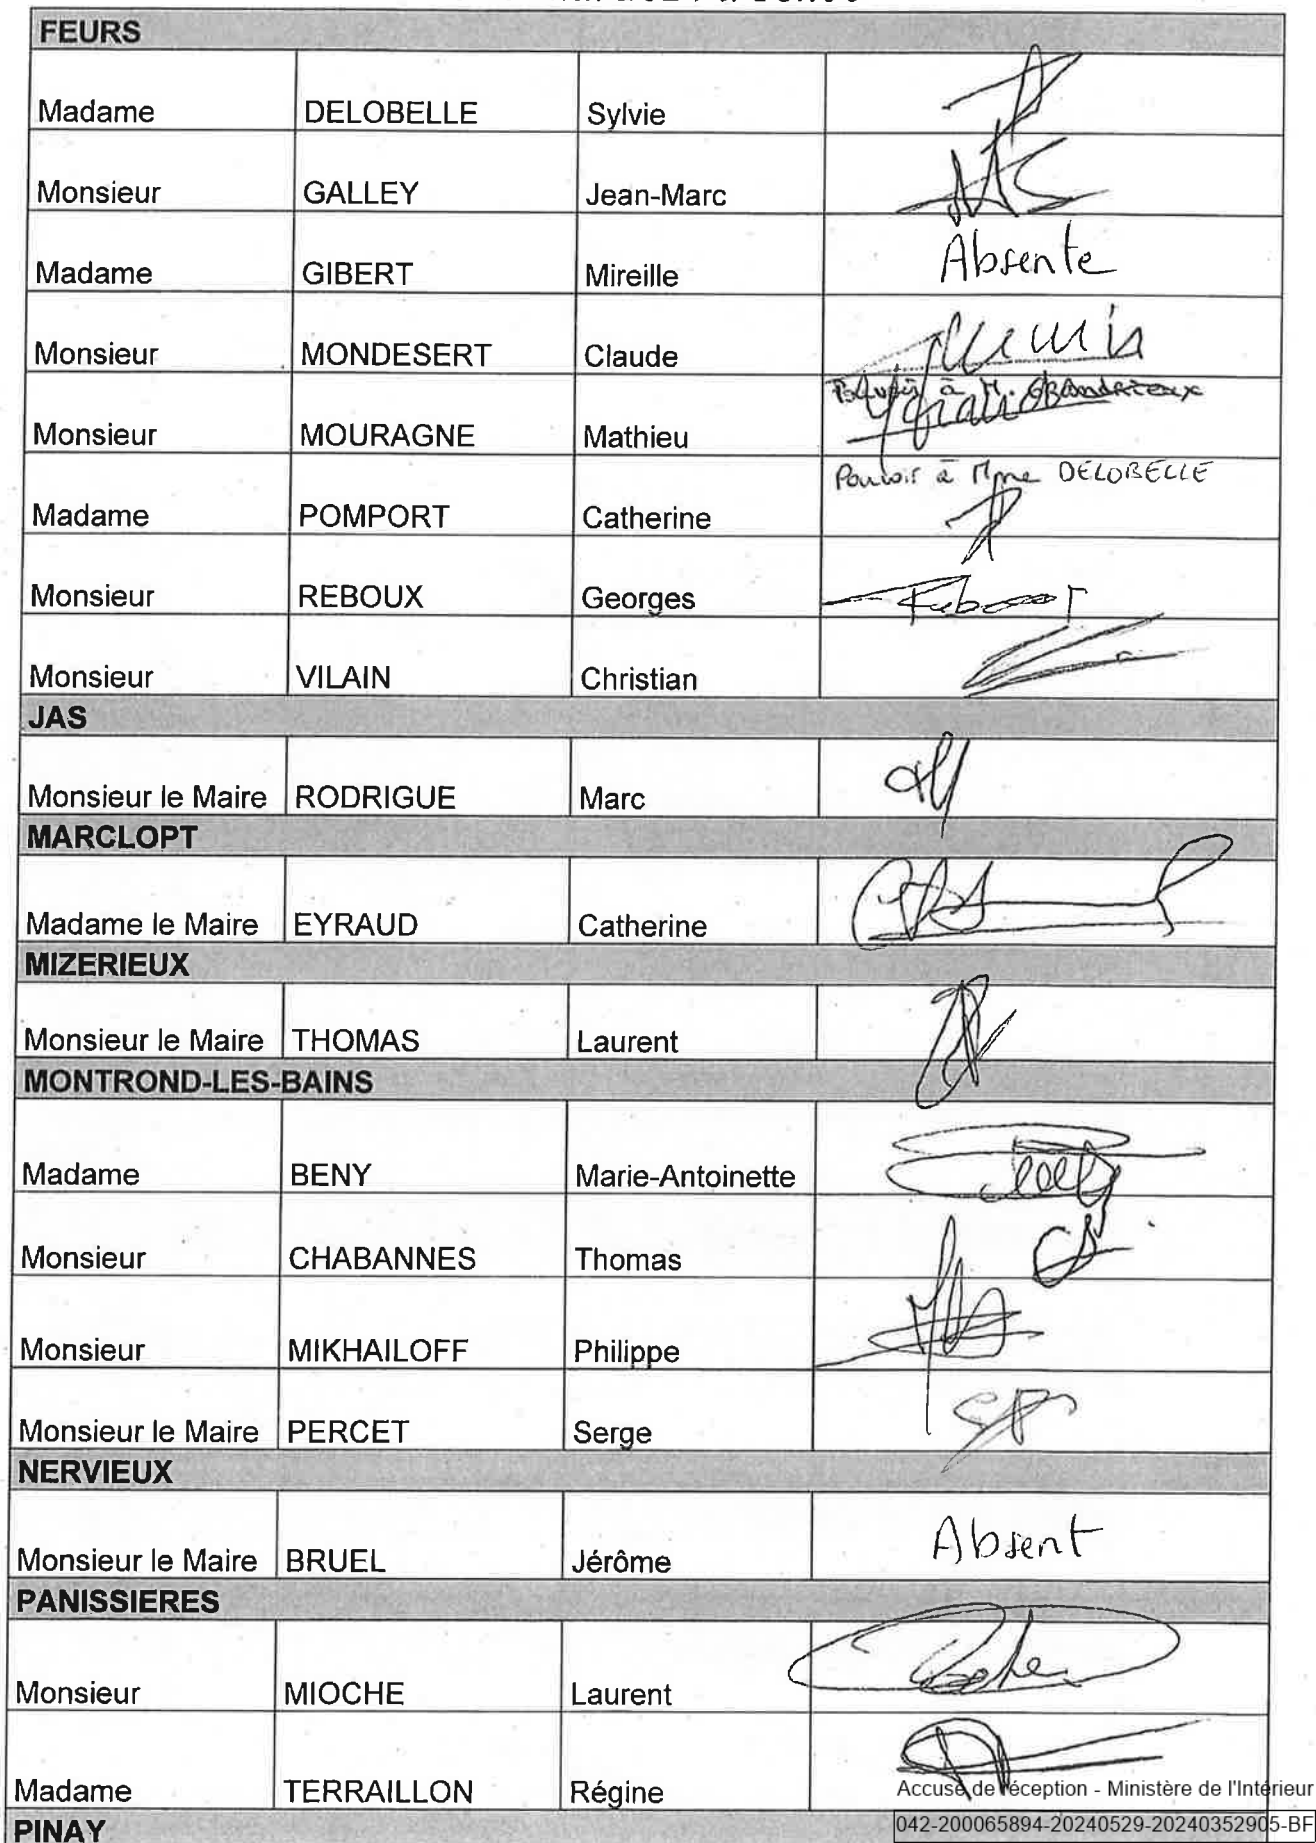 FEURS
Madame DELOBELLE Sylvie
Monsieur GALLEY Jean-Marc
Madame GIBERT Mireille Absente
Monsieur MONDESERT Claude
Monsieur MOURAGNE Mathieu à M. GRANDRIEUX
Pouvoir à Mme DELOBELLE
Madame POMPORT Catherine
Monsieur REBOUX Georges
Monsieur VILAIN Christian
JAS
Monsieur le Maire RODRIGUE Marc
MARCLOPT
Madame le Maire EYRAUD Catherine
MIZERIEUX
Monsieur le Maire THOMAS Laurent
MONTROND-LES-BAINS
Madame BENY Marie-Antoinette
Monsieur CHABANNES Thomas
Monsieur MIKHAILOFF Philippe
Monsieur le Maire PERCET Serge
NERVIEUX
Monsieur le Maire BRUEL Jérôme Absent
PANISSIERES
Monsieur MIOCHE Laurent
Madame TERRAILLON Régine
Accusé de réception - Ministère de l'Intérieur
PINAY
042-200065894-20240529-20240352905-BF